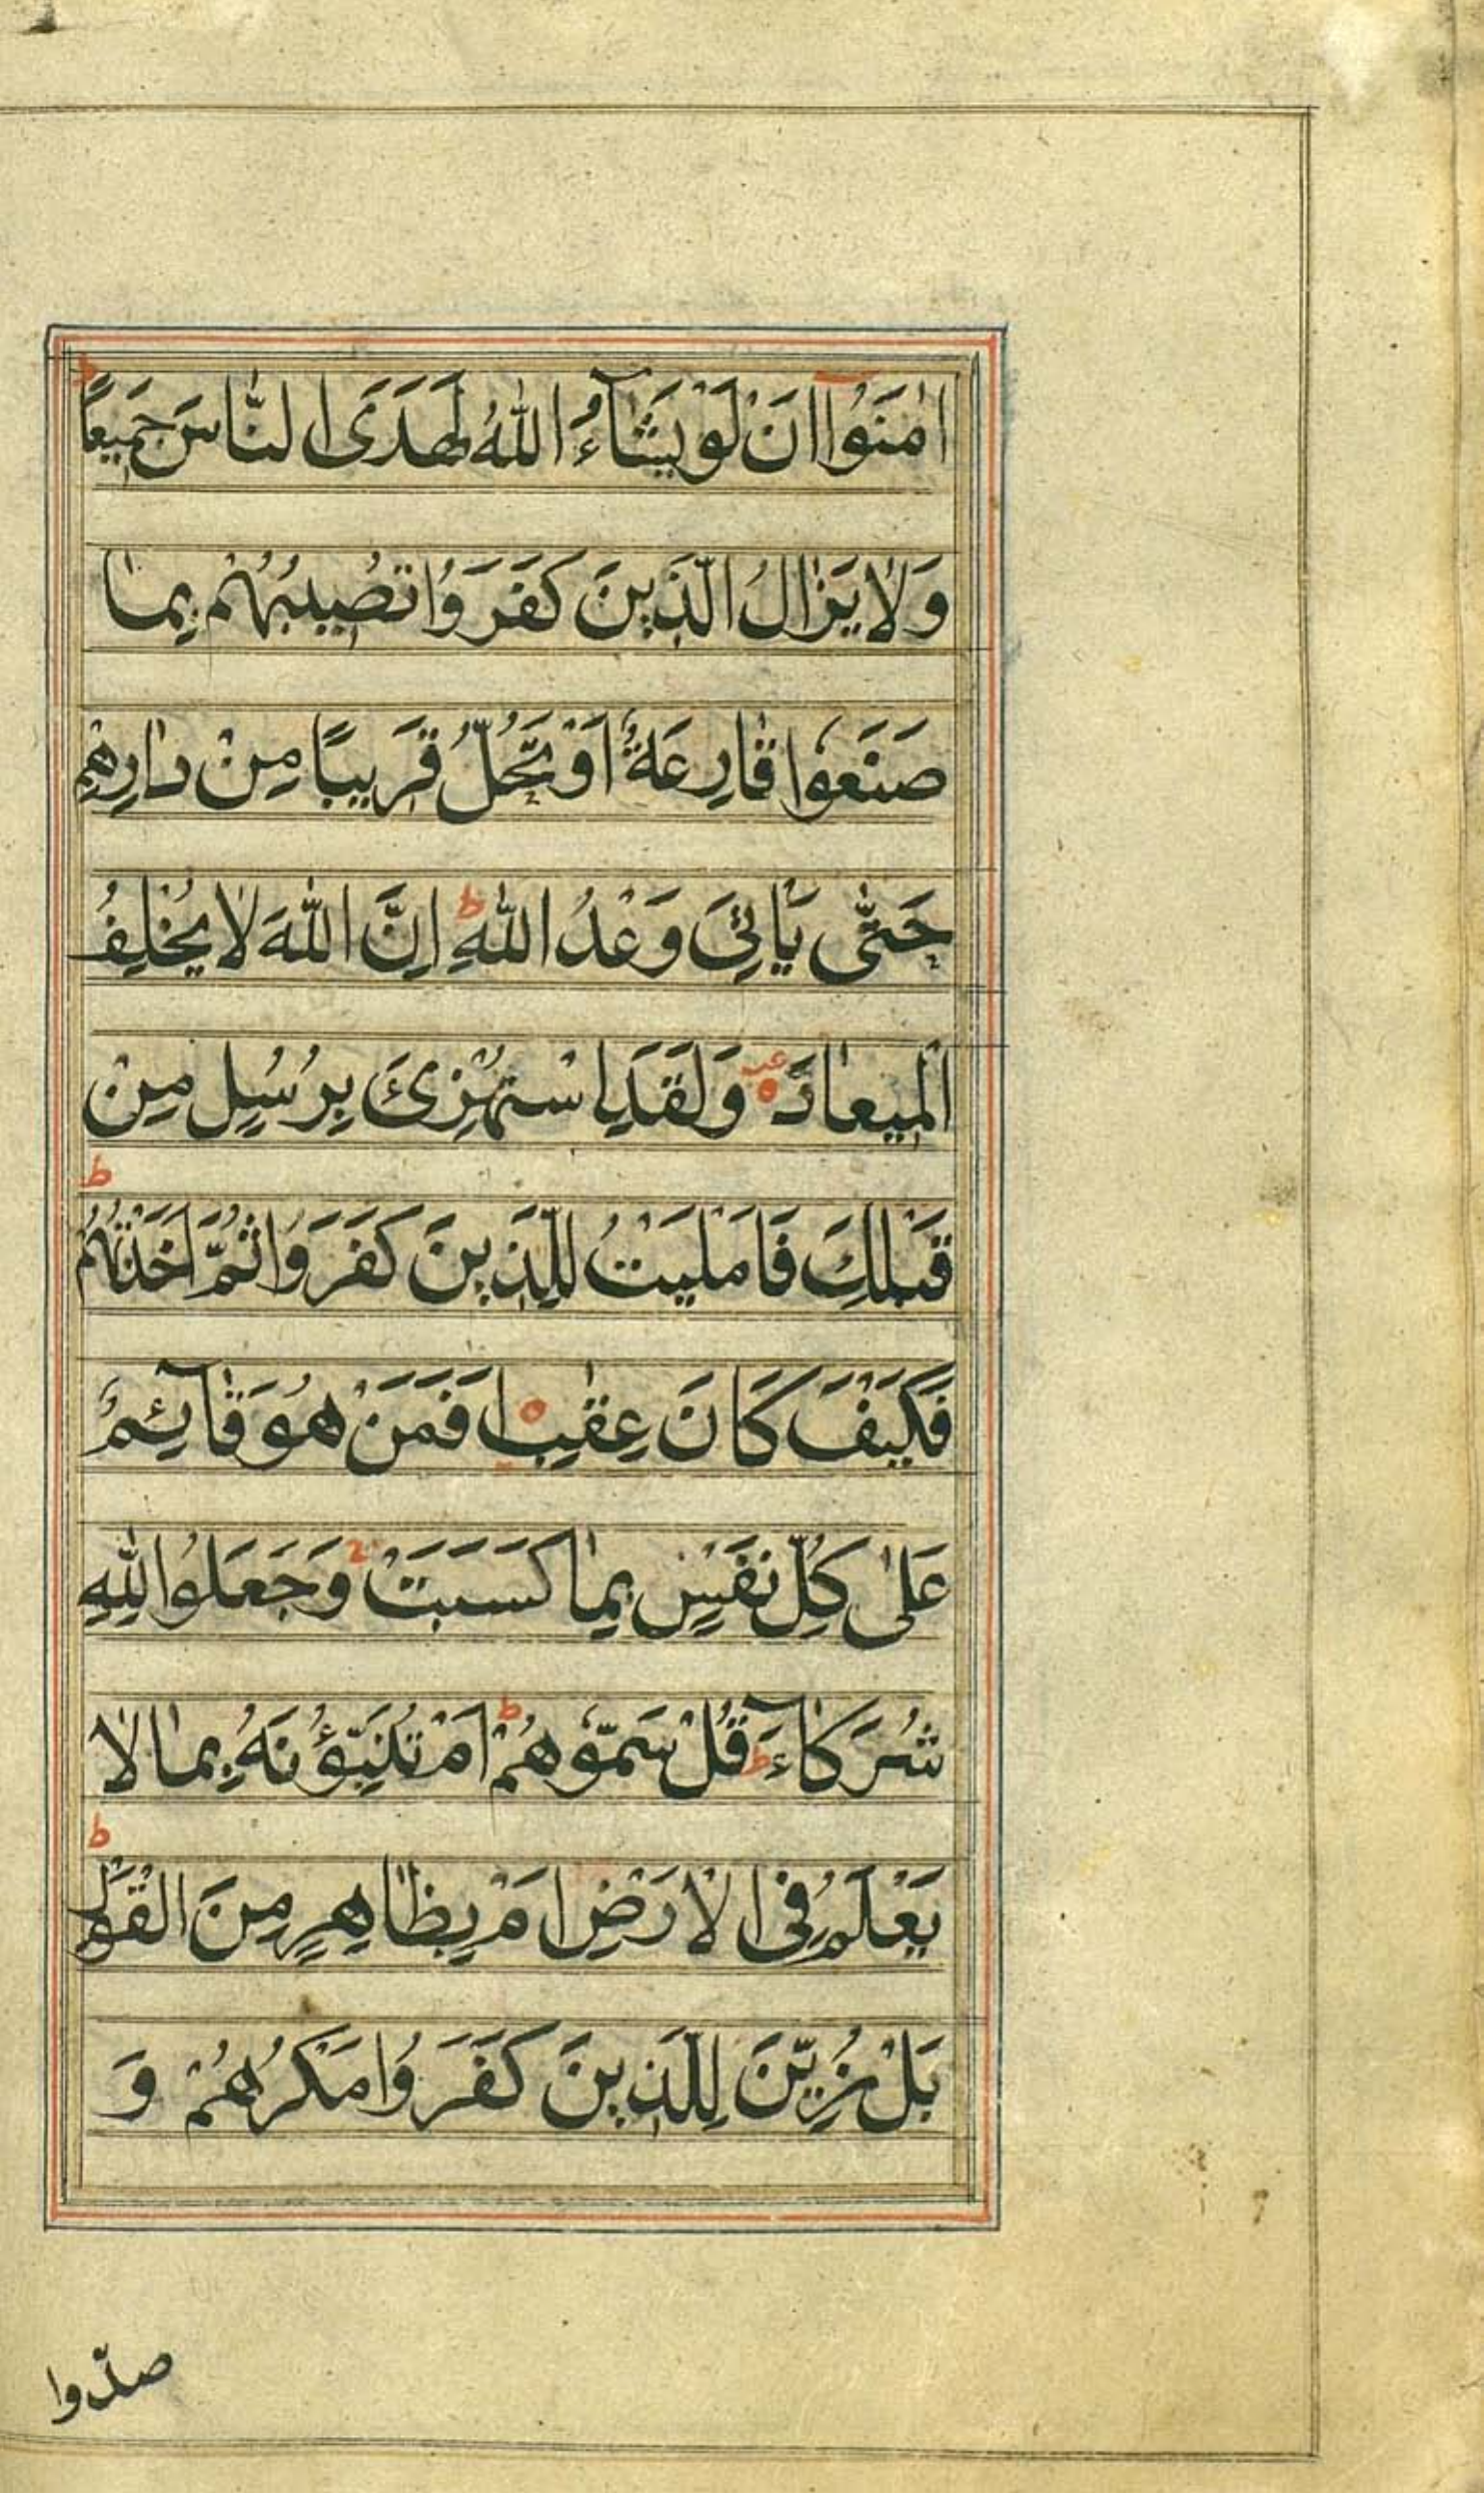 اٰمَنُوْٓا اَنْ لَوْ يَشَآءُ اللّٰهُ لَهَدَى النَّاسَ جَمِيْعًا ط
وَلَا يَزَالُ الَّذِيْنَ كَفَرُوْا تُصِيْبُهُمْ بِمَا
صَنَعُوْا قَارِعَةٌ اَوْ تَحُلُّ قَرِيْبًا مِنْ دَارِهِمْ
حَتّٰى يَاْتِيَ وَعْدُ اللّٰهِ ط اِنَّ اللّٰهَ لَا يُخْلِفُ
الْمِيْعَادَ وَلَقَدِ اسْتُهْزِئَ بِرُسُلٍ مِنْ
قَبْلِكَ فَاَمْلَيْتُ لِلَّذِيْنَ كَفَرُوْا ثُمَّ اَخَذْتُهُمْ ط
فَكَيْفَ كَانَ عِقَابِ اَفَمَنْ هُوَ قَآئِمٌ
عَلٰى كُلِّ نَفْسٍ بِمَا كَسَبَتْ وَجَعَلُوْا لِلّٰهِ
شُرَكَآءَ ط قُلْ سَمُّوْهُمْ ط اَمْ تُنَبِّؤُنَهُ بِمَا لَا
يَعْلَمُ فِى الْاَرْضِ اَمْ بِظَاهِرٍ مِنَ الْقَوْلِ ط
بَلْ زُيِّنَ لِلَّذِيْنَ كَفَرُوْا مَكْرُهُمْ وَ
صدّوا